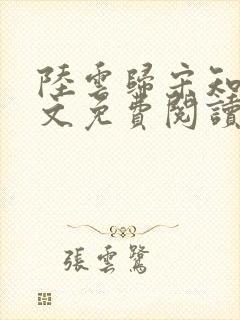 陸雲歸宋知
文免費閱讀
張雲鷺